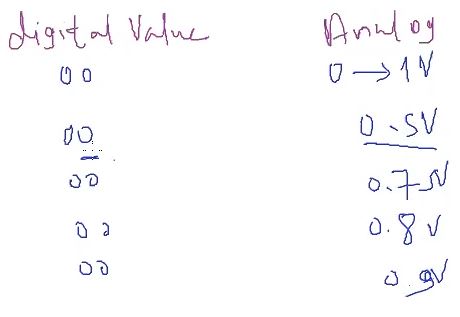 digital Value Analog
00 0 → 1V
00 0.5V
00 0.75V
00 0.8V
00 0.9V